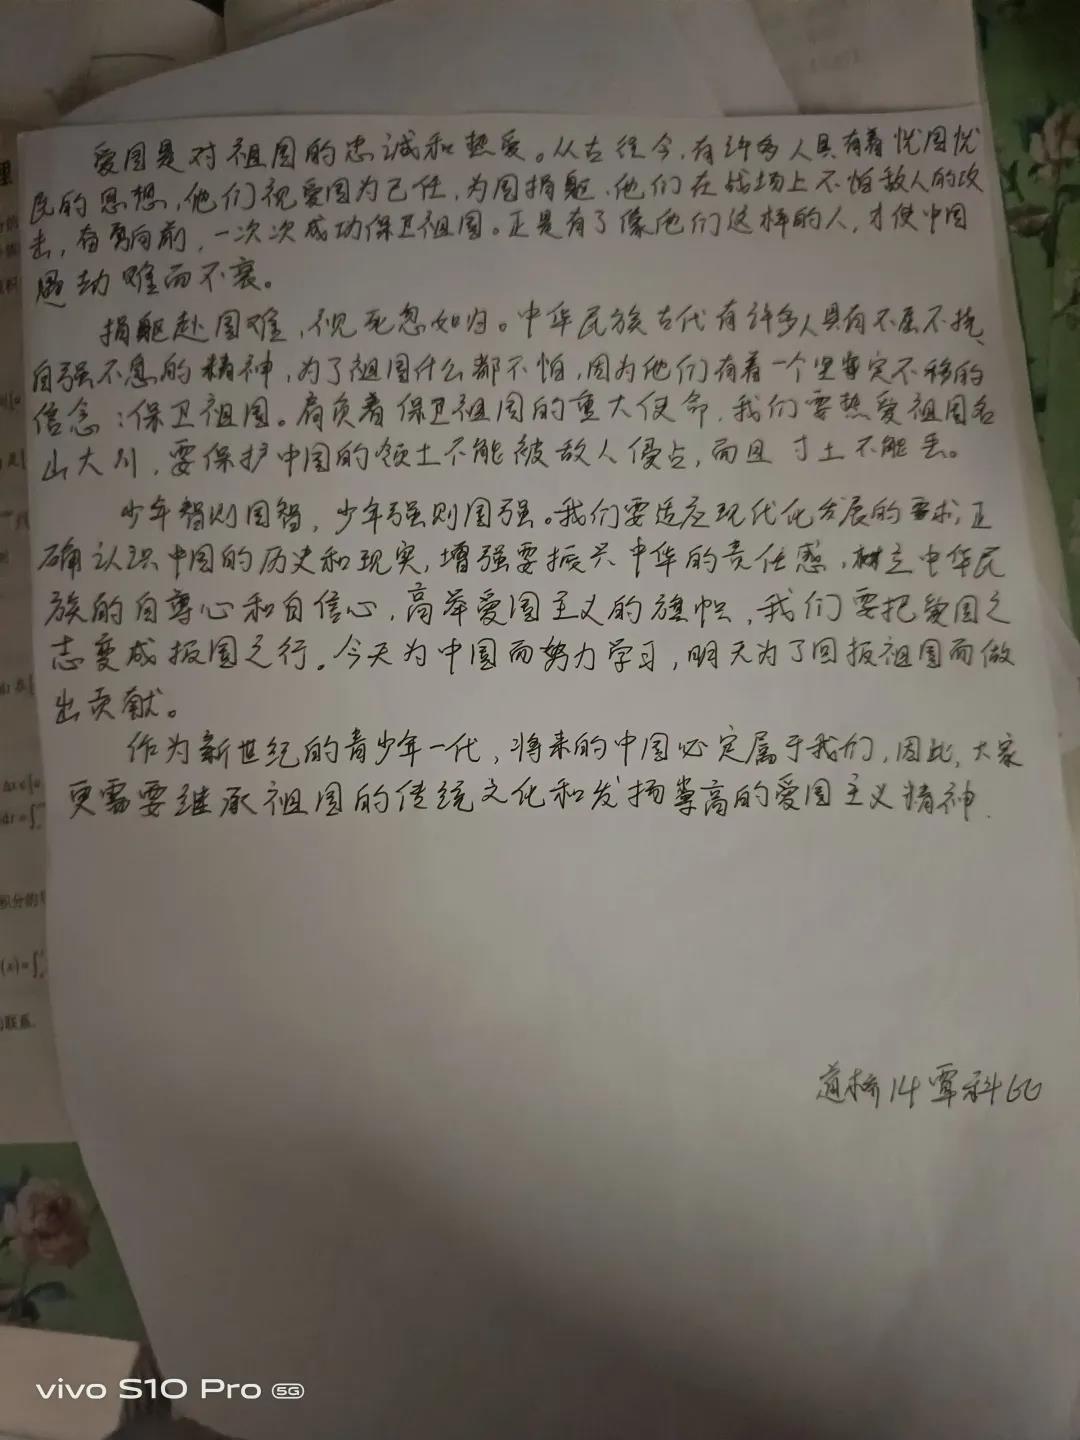 爱国是对祖国的忠诚和热爱。从古往今，有许多人具有着忧国忧
民的思想，他们视爱国为己任，为国捐躯、他们在战场上不怕敌人的攻
击，奋勇向前，一次次成功保卫祖国。正是有了像他们这样的人，才使中国
遇劫难而不衰。
捐躯赴国难，视死忽如归。中华民族古代有许多人具有不屈不挠、
自强不息的精神，为了祖国什么都不怕，因为他们有着一个坚定不移的
信念：保卫祖国。肩负着保卫祖国的重大使命，我们要热爱祖国名
山大川，要保护中国的领土不能被敌人侵占，而且寸土不能丢。
少年智则国智，少年强则国强。我们要适应现代化发展的要求，正
确认识中国的历史和现实，增强要振兴中华的责任感，树立中华民
族的自尊心和自信心，高举爱国主义的旗帜，我们要把爱国之
志变成报国之行。今天为中国而努力学习，明天为了回报祖国而做
出贡献。
作为新世纪的青少年一代，将来的中国必定属于我们，因此，大家
更需要继承祖国的传统文化和发扬崇高的爱国主义精神.
道桥14覃科
vivo S10 Pro 5G
理
积分的
的联系.